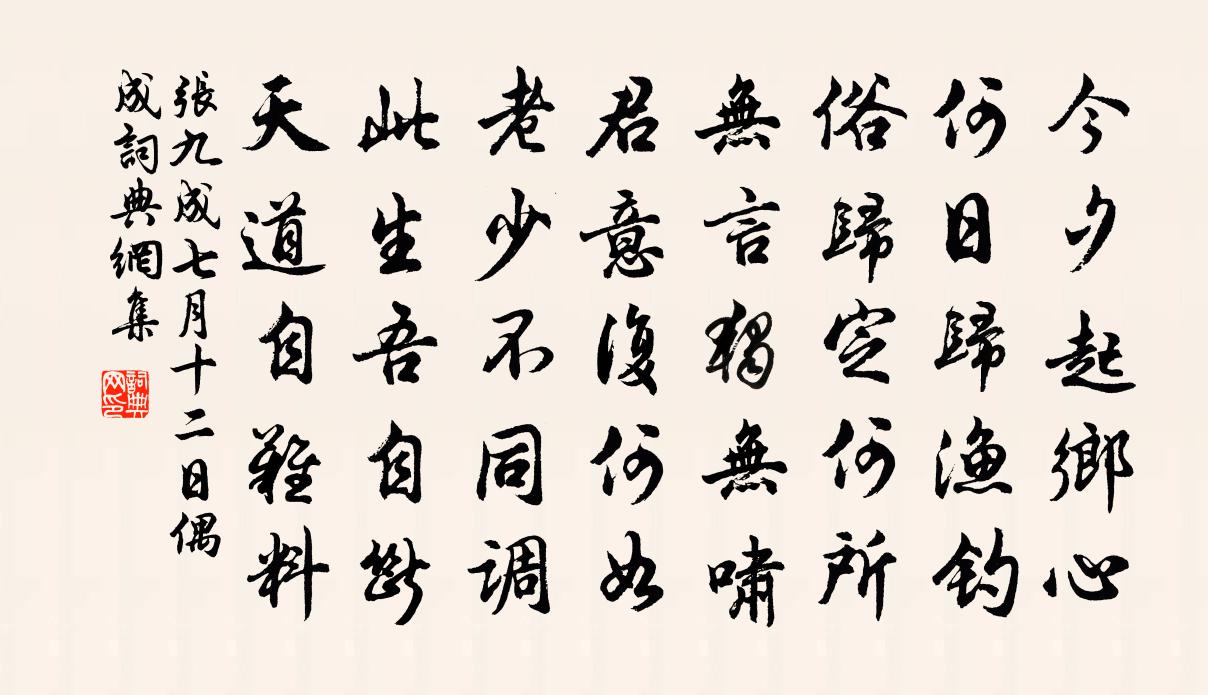 今夕起鄉心
何日歸漁釣
俗歸定何所
無言獨無嘯
君意復何如
老少不同調
此生吾自斷
天道自難料
張九成七月十二日偶
成詞典網集
詞典
网印